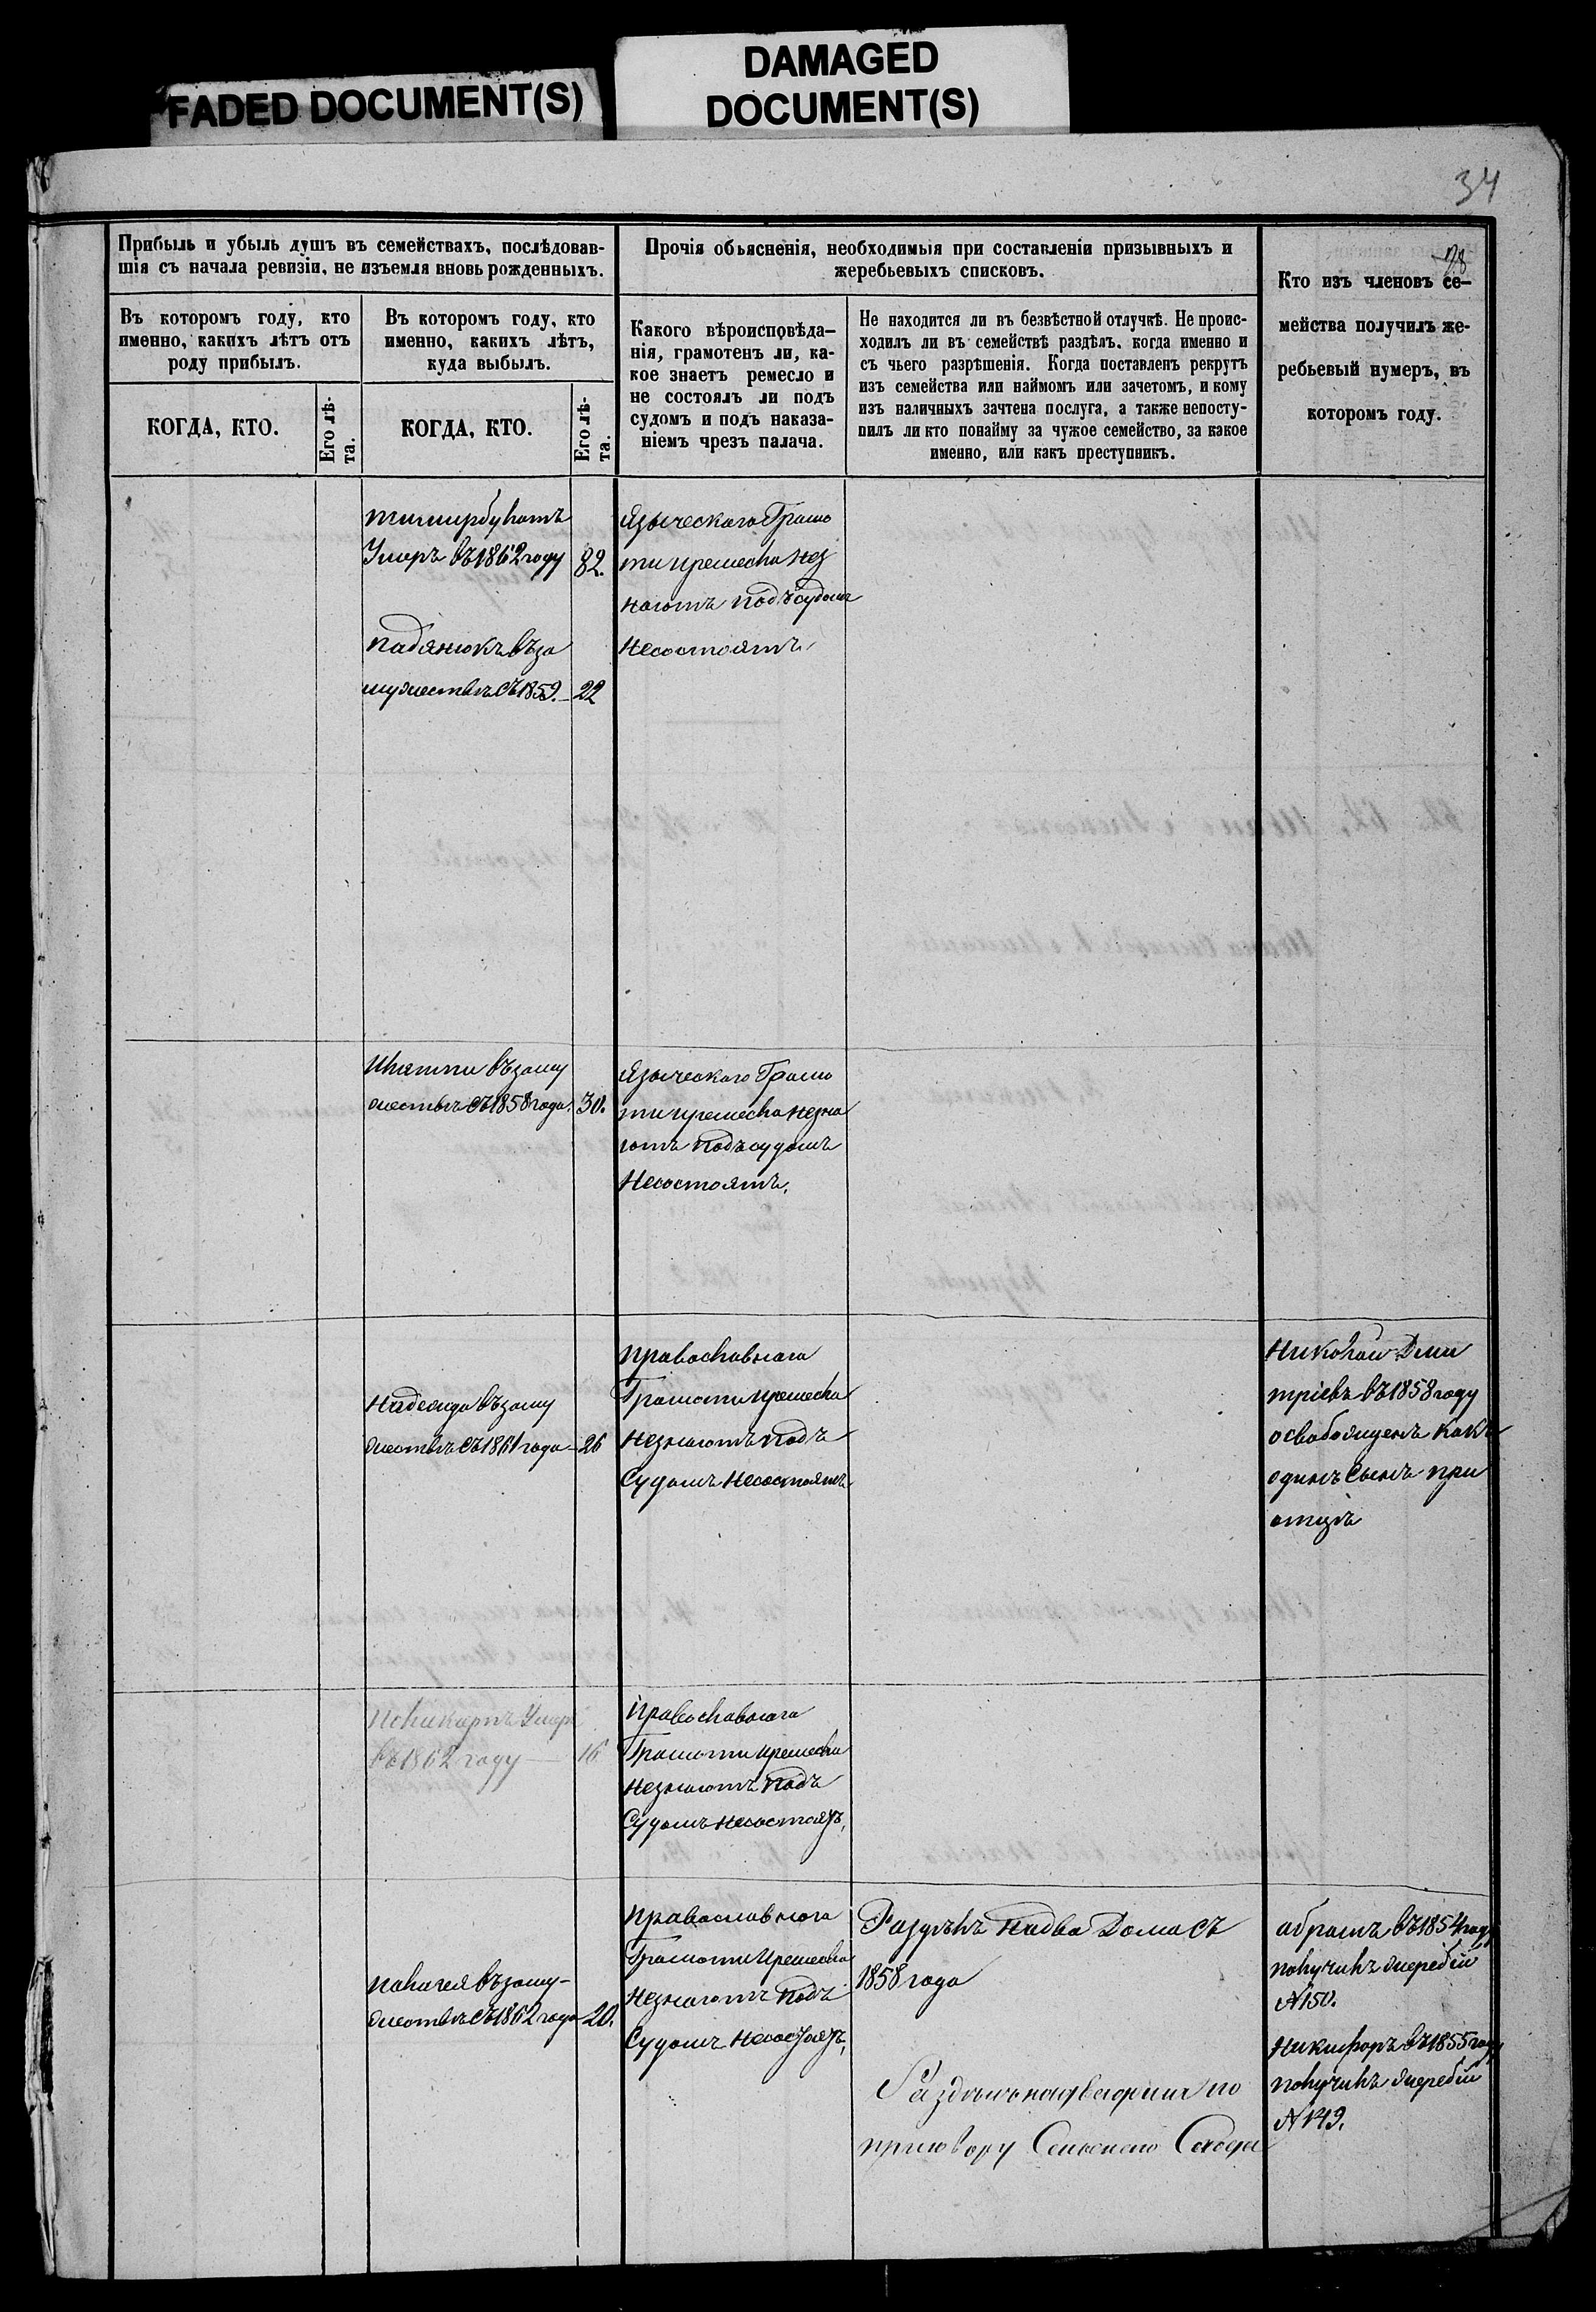 FADED DOCUMENT(S)
DAMAGED
DOCUMENT(S)
34
Прибыль и убыль душъ въ семействахъ, послѣдовав-
шія съ начала ревизіи, не изъемля вновь рожденныхъ.
Прочія объясненія, необходимыя при составленіи призывныхъ и
жеребьевыхъ списковъ.
Кто изъ членовъ се-
мейства получилъ же-
ребьевый нумеръ, въ
которомъ году.
Въ которомъ году, кто
именно, какихъ лѣтъ отъ
роду прибылъ.
Въ которомъ году, кто
именно, какихъ лѣтъ,
куда выбылъ.
Какого вѣроисповѣда-
нія, грамотенъ ли, ка-
кое знаетъ ремесло и
не состоялъ ли подъ
судомъ и подъ наказа-
ніемъ чрезъ палача.
Не находится ли въ безвѣстной отлучкѣ. Не проис-
ходилъ ли въ семействѣ раздѣлъ, когда именно и
съ чьего разрѣшенія. Когда поставленъ рекрутъ
изъ семейства или наймомъ или зачетомъ, и кому
изъ наличныхъ зачтена послуга, а также непосту-
пилъ ли кто понайму за чужое семейство, за какое
именно, или какъ преступникъ.
КОГДА, КТО.
Его лѣ-
та.
КОГДА, КТО.
Его лѣ-
та.
тимирбулатъ
Умеръ въ 1862 году 82.
падянюкъ въ за
мужествѣ съ 1859. 22
Языческаго Грамо
ти иремесла Нез
наютъ подъ судомъ
Несостоятъ
въ заму
жествѣ съ 1858 года. 30.
Языческаго Грамо
ти иремесла незна
ютъ подъ судомъ
Несостоятъ.
Надежда въ заму
жествѣ съ 1861 года 26
православнаго
Грамоти иремесла
Незнаютъ подъ
Судомъ Несостоятъ
Николай Дми
тріевъ въ 1858 году
освобожденъ какъ
одинъ Сынъ при
отцѣ
поликарпъ Умеръ
въ 1862 году 16
православнаго
Грамоти иремесла
Незнаютъ подъ
Судомъ Несостоятъ.
палагея въ заму-
жествѣ съ 1862 года 20.
православнаго
Грамоти иремесла
Незнаютъ подъ
Судомъ Несостоятъ.
Раздѣлъ надва Дома съ
1858 года
Раздѣлъ
приговору Сельскаго Схода
абрамъ въ 1854 году
получилъ жеребій
№150.
Никифоръ въ 1855 году
получилъ жеребій
№149.